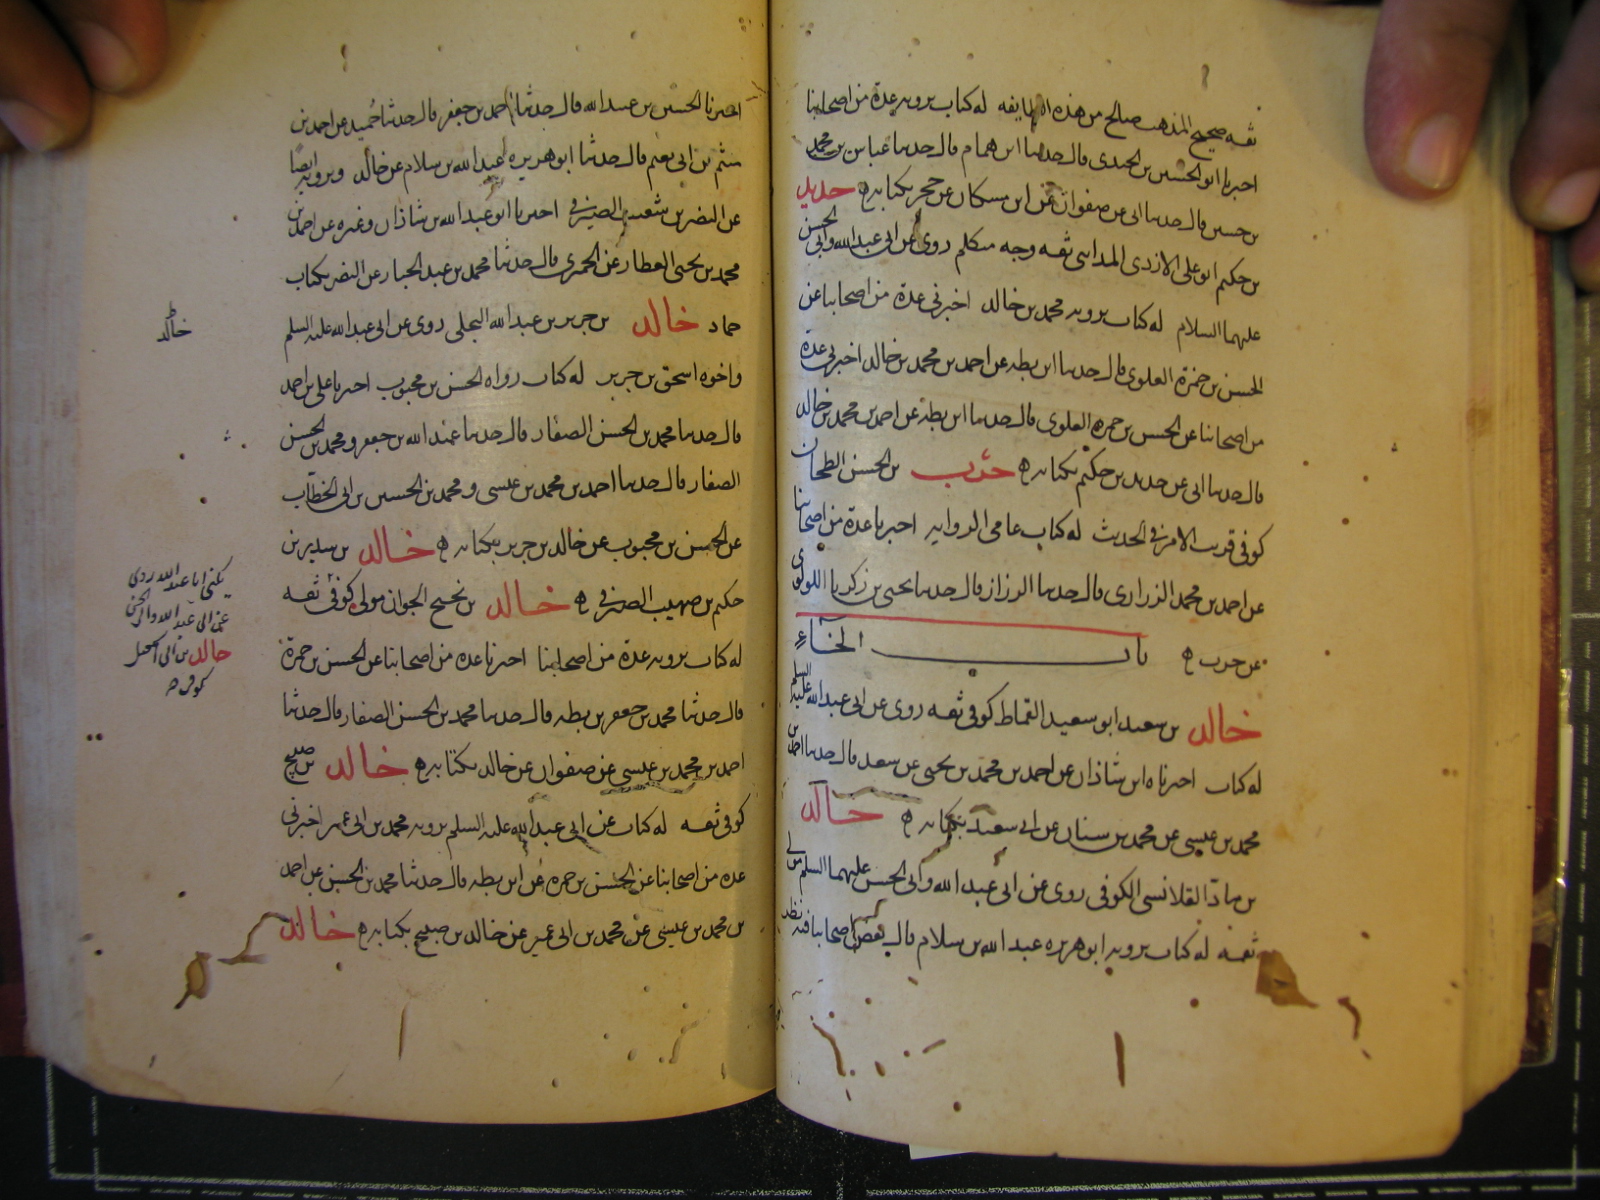 ثقه صحيح المذهب صالح من هذه الطايفه له كتاب يرويه عدة من اصحابنا
اخبرنا ابو الحسين بن الجندى قال حدثنا ابن همام قال حدثنا عباس بن محمد
بن حسين قال حدثنا ابى عن صفوان عن ابن مسكان عن حجر بكتابه ه حديد
بن حكيم ابو على الازدى المداينى ثقه وجه متكلم روى عن ابى عبد الله وابى الحسن
عليهما السلام له كتاب يرويه محمد بن خالد اخبرنى عدة من اصحابنا عن
الحسن بن حمزة العلوى قال حدثنا ابن بطه عن احمد بن محمد بن خالد اخبرنى عدة
من اصحابنا عن الحسن بن حمزه العلوى قال حدثنا ابن بطه عن احمد بن محمد بن خالد
قال حدثنا ابى عن حديد بن حكيم بكتابه ه حرب بن الحسن الطحان
كوفى قريب الامر فى الحديث له كتاب عامى الروايه اخبرنا عدة من اصحابنا
عن احمد بن محمد الزرارى قال حدثنا الرزاز قال حدثنا يحيى بن زكريا اللولوى
عن حرب ه باب الخاء
خالد بن سعيد ابو سعيد القماط كوفى ثقه روى عن ابى عبد الله عليه السلم
له كتاب اخبرناه ابن شاذان عن احمد بن محمد بن يحيى عن سعد قال حدثنا احمد بن
محمد بن عيسى عن محمد بن سنان عن ابى سعيد بكتابه ه خالد
بن ماد القلانسى الكوفى روى عن ابى عبد الله وابى الحسن عليهما السلم
ثقه له كتاب يرويه ابو هريره عبد الله بن سلام قال بعض اصحابنا فيه نظر
اخبرنا الحسين بن عبيد الله قال حدثنا احمد بن جعفر قال حدثنا حميد عن احمد بن
ميثم بن ابى نعيم قال حدثنا ابو هريره عبد الله بن سلام عن خالد ويرويه ايضا
عن النضر بن شعيب الصيرفى اخبرنا ابو عبد الله بن شاذان وغيره عن احمد بن
محمد بن يحيى العطار عن الحميرى قال حدثنا محمد بن عبد الجبار عن النضر بكتاب
حماد خالد بن جرير بن عبد الله البجلى روى عن ابى عبد الله عليه السلم
واخوه اسحق بن جرير له كتاب رواه الحسن بن محبوب اخبرنا على بن احمد
قال حدثنا محمد بن الحسن الصفار قال حدثنا عبد الله بن جعفر ومحمد بن الحسن
الصفار قال حدثنا احمد بن محمد بن عيسى ومحمد بن الحسين بن ابى الخطاب
عن الحسن بن محبوب عن خالد بن جرير بكتابه ه خالد بن سدير بن
حكيم بن صهيب الصيرفى ه خالد بن نجيح الجوان مولى كوفى ثقه
له كتاب يرويه عدة من اصحابنا اخبرنا عده من اصحابنا عن الحسن بن حمزة
قال حدثنا محمد بن جعفر بن بطه قال حدثنا محمد بن الحسن الصفار قال حدثنا
احمد بن محمد بن عيسى عن صفوان عن خالد بكتابه ه خالد بن صبيح
كوفى ثقه له كتاب عن ابى عبد الله عليه السلم يرويه محمد بن ابى عمير اخبرنى
عده من اصحابنا عن الحسن بن حمزه عن ابن بطه قال حدثنا محمد بن الحسن عن احمد
بن محمد بن عيسى عن محمد بن ابى عمير عن خالد بن صبيح بكتابه ه خالد
خالد
يكنى ابا عبد الله روى
عن ابى عبد الله وابى الحسن
خالد بن ابى اسمعيل
كوفى